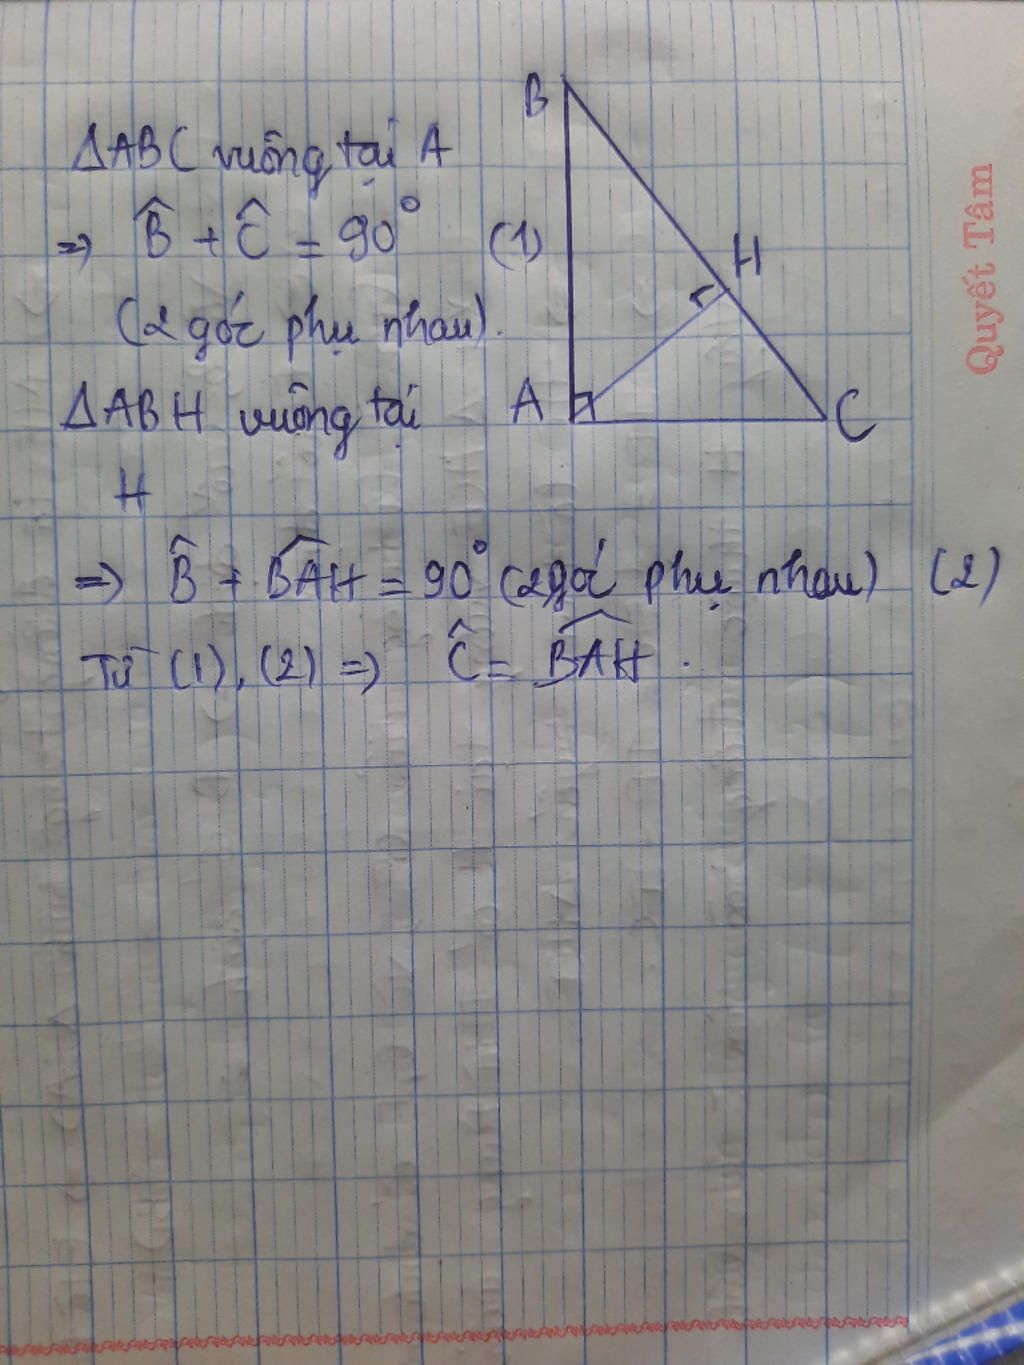 ΔABC vuông tại A
⇒ B̂ + Ĉ = 90° (1)
(2 góc phụ nhau).
ΔABH vuông tại
H
⇒ B̂ + B̂AH = 90° (2 góc phụ nhau) (2)
Từ (1), (2) ⇒ Ĉ = B̂AH .
B
H
A
C
Quyết Tâm